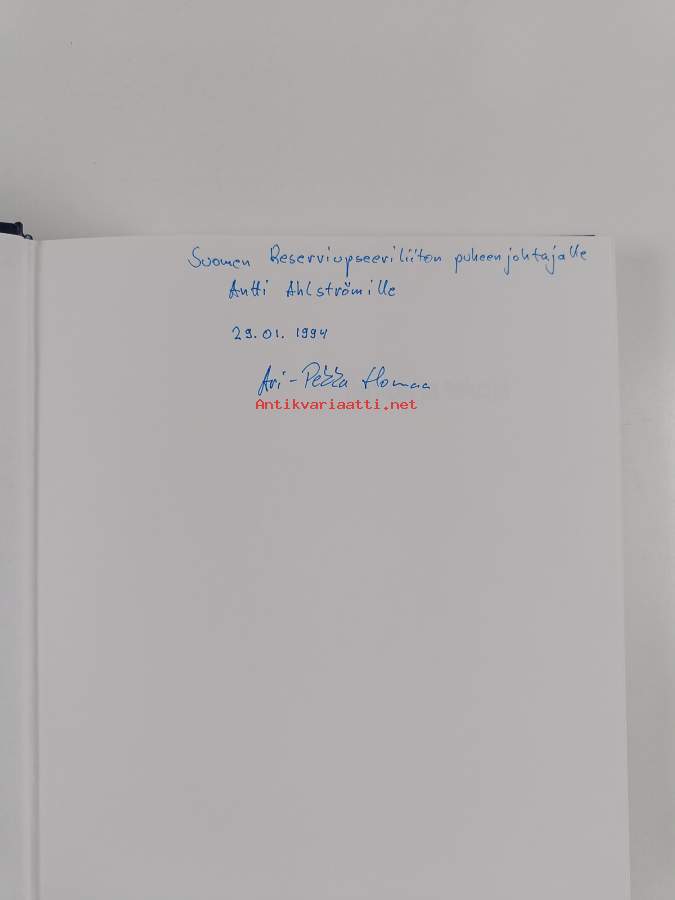 Suomen Reserviupseeriliiton puheenjohtajalle
Antti Ahlströmille
29.01.1994
Ari-Pekka Homaa
Antikvariaatti.net